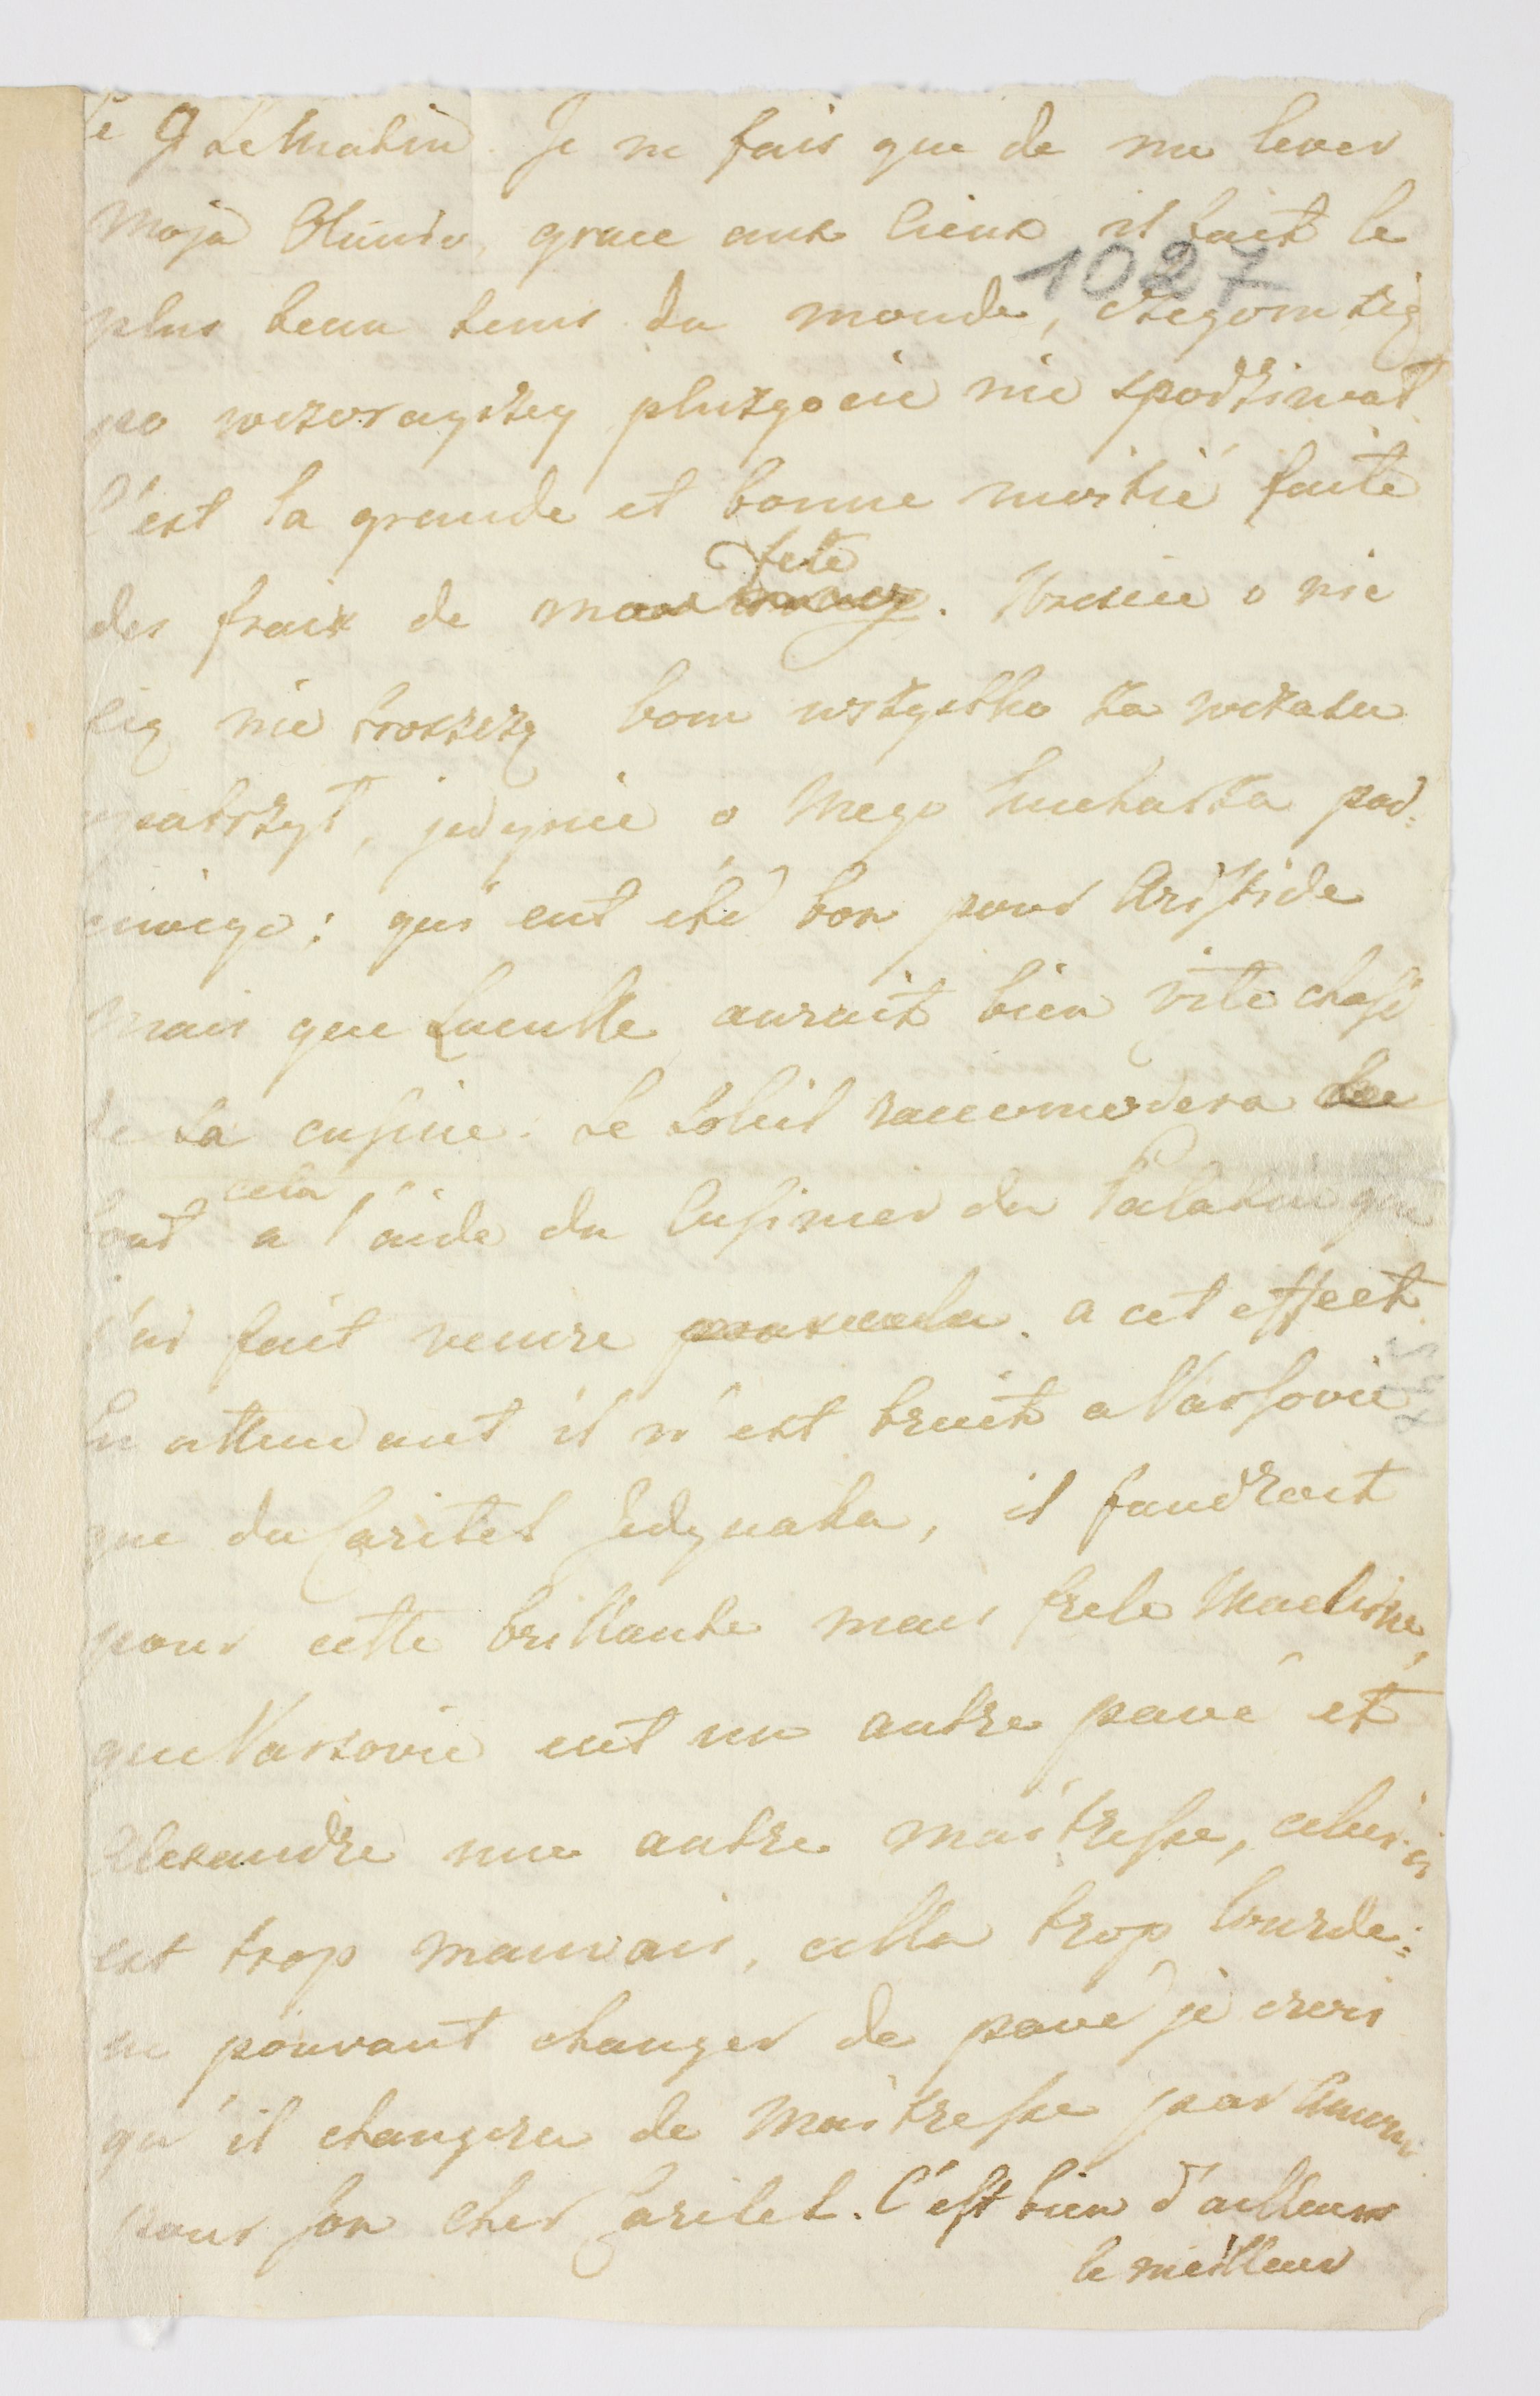 Le 9 Le Matin. Je ne fais que de me lever
Moja Oluniu, grace aux cieux il fait le
1027
plus beau tems du monde, czegom się
po wczorayszey pluzgocie nie spodziwał
C'est la grande et bonne moitié faite
fete
des fraix de ma. Wreście o nic
się nie troszczę bom wszystko za wczasu
opatrzył, jedynie o Mego kucharza pod=
: qui eut eté bon pour Aristide
mais que Luculle auroit bien vite chassé
de sa cusine. Le Soleil raccomodera
cela
tout a l'aide du Cusinier du Palatin que
j'ai fait venire a cet effect
En attendant il n'est bruit a Varsovie
que du Cariclet Jedynaka, il faudroit
pour cette brillante mais frele Machine,
que Varsovie eut un autre pavé et
Alexandre une autre maitresse, celui-ci
est trop mauvais, cella trop lourde:
ne pouvant changer de pavé je crois
qu'il changera de Maitresse par Amour
pour son cher Cariclet. C'est bien d'ailleurs
le meilleur